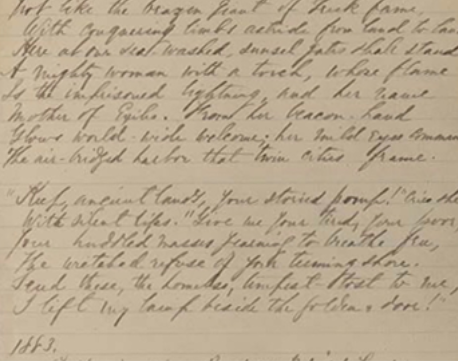 Not like the brazen giant of Greek fame,
With conquering limbs astride from land to lan
Here at our sea-washed, sunset gates shall stand
A mighty woman with a torch, whose flame
Is the imprisoned lightning, and her name
Mother of Exiles. From her beacon-hand
Glows world-wide welcome; her mild eyes comman
The air-bridged harbor that twin cities frame.
"Keep, ancient lands, your storied pomp!" cries she
With silent lips. "Give me your tired, your poor,
Your huddled masses yearning to breathe free,
The wretched refuse of your teeming shore.
Send these, the homeless, tempest-tost to me,
I lift my lamp beside the golden door!"
1883.